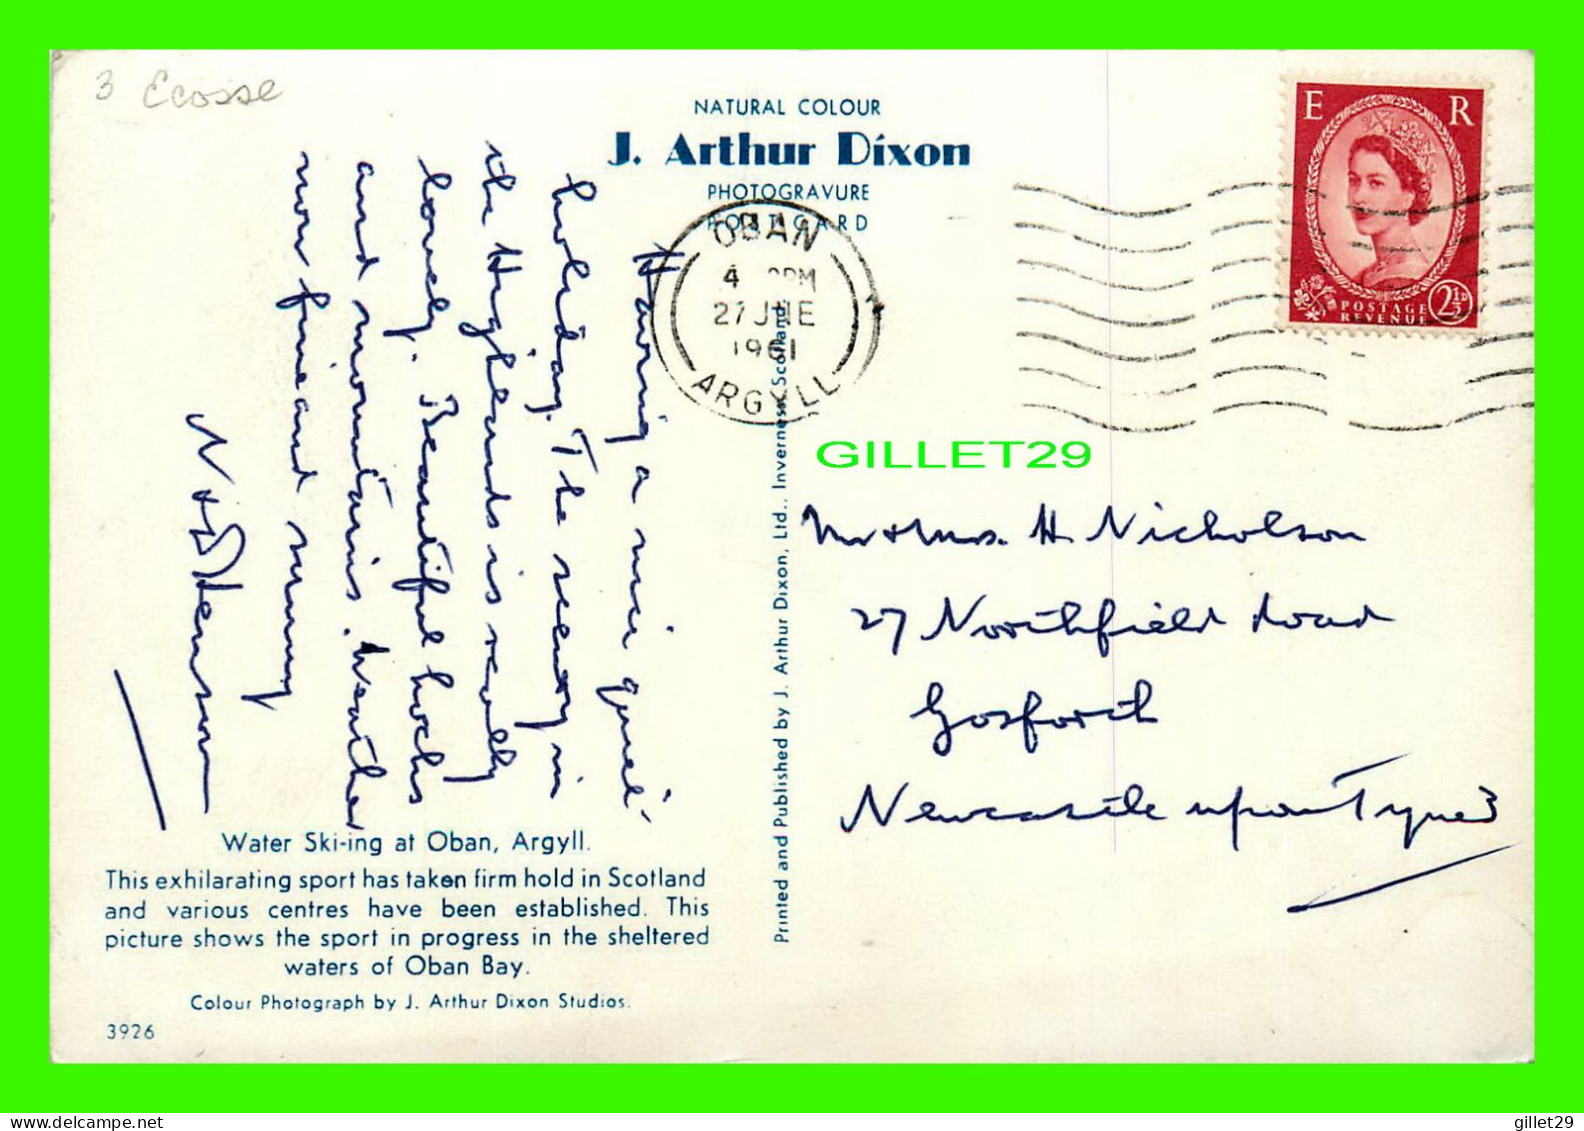 3 Ecosse
NATURAL COLOUR
J. Arthur Dixon
PHOTOGRAVURE
POSTCARD
OBAN
4 PM
27 JNE
1961
ARGYLL
E R
POSTAGE
REVENUE
2½D
Having a nice quiet
holiday. The scenery in
the Highlands is really
lovely. Beautiful lochs
and mountains. Weather
now fine and sunny
N & D Henson
GILLET29
Mr & Mrs. H Nicholson
27 Northfield Road
Gosforth
Newcastle upon Tyne 3
Printed and Published by J. Arthur Dixon, Ltd., Inverness, Scotland
Water Ski-ing at Oban, Argyll.
This exhilarating sport has taken firm hold in Scotland
and various centres have been established. This
picture shows the sport in progress in the sheltered
waters of Oban Bay.
Colour Photograph by J. Arthur Dixon Studios.
3926
delcampe.net
gillet29